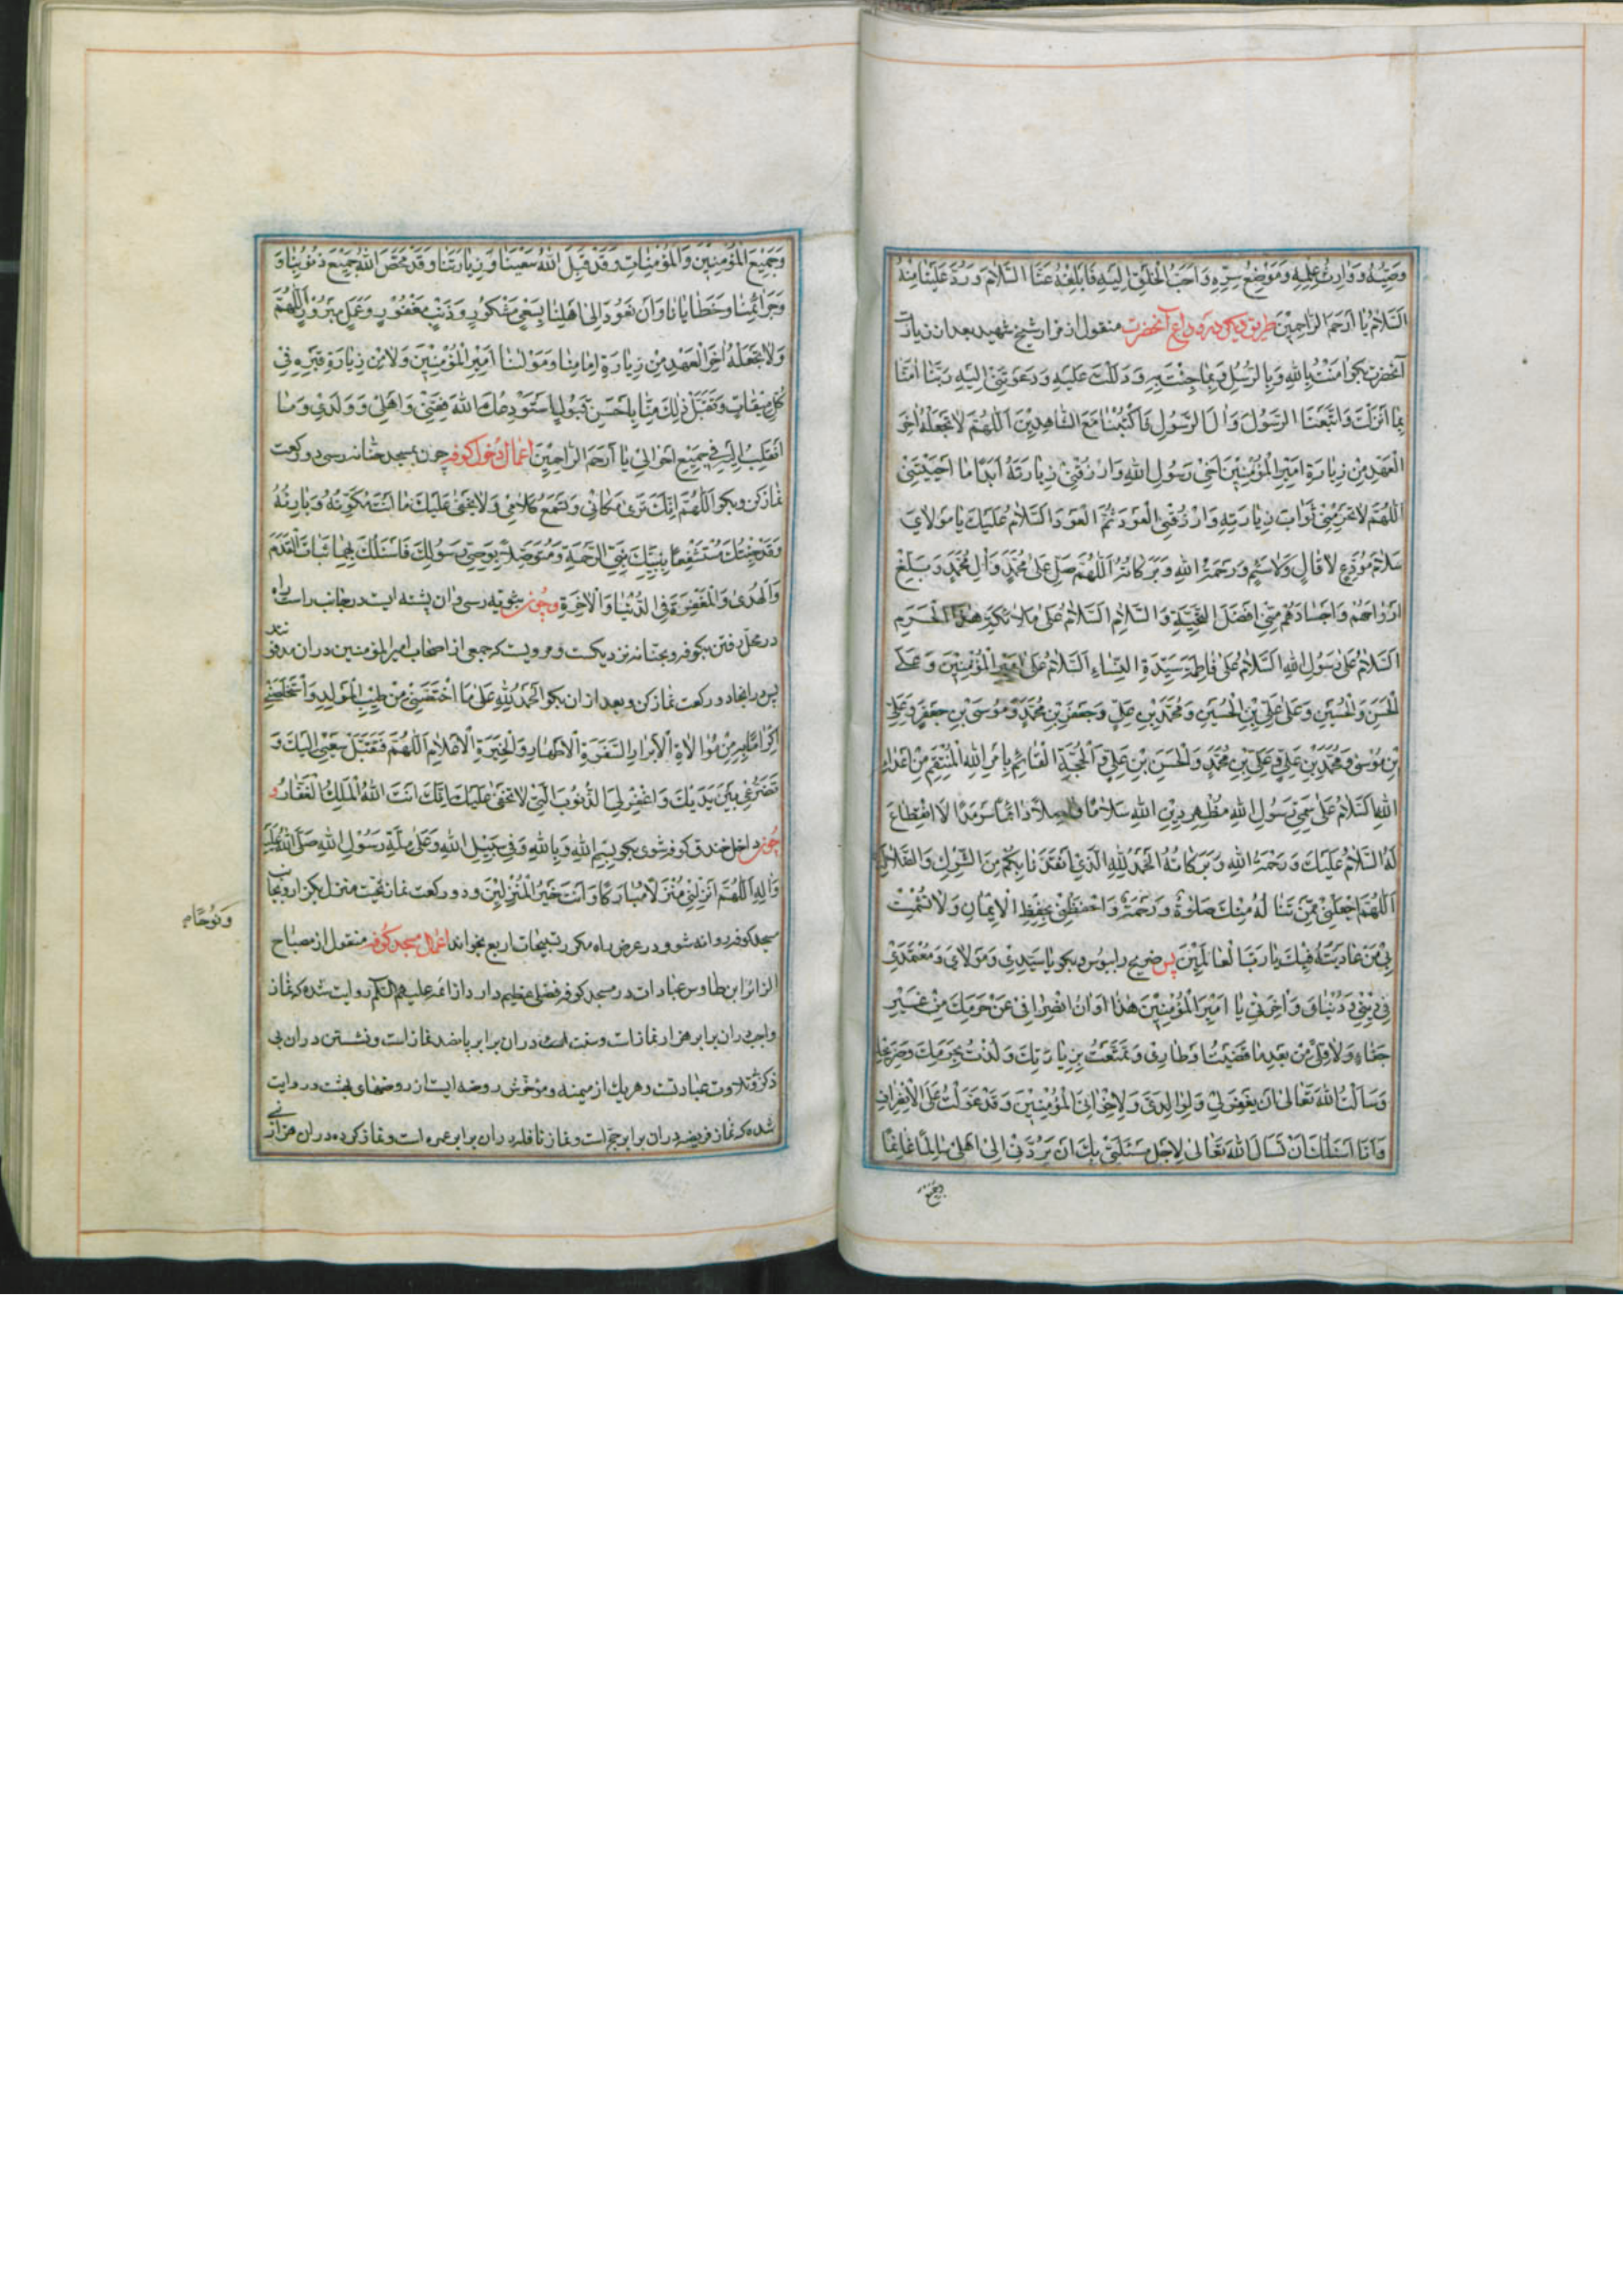 وَصِيِّهِ وَوَارِثِ عِلْمِهِ وَمَوْضِعِ سِرِّهِ وَاَحَبِّ الْخَلْقِ اِلَيْهِ فَاَبْلِغْهُ عَنَّا السَّلَامَ وَرُدَّ عَلَيْنَا مِنْهُ
السَّلَامَ يَا اَرْحَمَ الرَّاحِمِيْنَ طريق ديكر در وداع آنحضرت منقول از مزار شيخ شهيد بعد از زيارت
آنحضرت بكو امَنْتُ بِاللهِ وَبِالرُّسُلِ وَبِمَا جِئْتَ بِهِ وَدَلَلْتَ عَلَيْهِ وَدَعَوْتَنِيْ اِلَيْهِ رَبَّنَا امَنَّا
بِمَا اَنْزَلْتَ وَاتَّبَعْنَا الرَّسُوْلَ وَالَ الرَّسُوْلِ فَاكْتُبْنَا مَعَ الشَّاهِدِيْنَ اَللّٰهُمَّ لَا تَجْعَلْهُ اخِرَ
الْعَهْدِ مِنْ زِيَارَةِ اَمِيْرِ الْمُؤْمِنِيْنَ اَخِيْ رَسُوْلِ اللهِ وَارْزُقْنِيْ زِيَارَتَهُ اَبَدًا مَا اَحْيَيْتَنِيْ
اَللّٰهُمَّ لَا تَحْرِمْنِيْ ثَوَابَ زِيَارَتِهِ وَارْزُقْنِي الْعَوْدَ ثُمَّ الْعَوْدَ اَلسَّلَامُ عَلَيْكَ يَا مَوْلَايَ
سَلَامَ مُوَدِّعٍ لَا قَالٍ وَلَا سَئِمٍ وَرَحْمَةُ اللهِ وَبَرَكَاتُهُ اَللّٰهُمَّ صَلِّ عَلٰى مُحَمَّدٍ وَالِ مُحَمَّدٍ وَبَلِّغْ
اَرْوَاحَهُمْ وَاَجْسَادَهُمْ مِنِّيْ اَفْضَلَ التَّحِيَّةِ وَالسَّلَامِ اَلسَّلَامُ عَلٰى مَلَائِكَةِ هٰذَا الْحَرَمِ
اَلسَّلَامُ عَلٰى رَسُوْلِ اللهِ اَلسَّلَامُ عَلٰى فَاطِمَةَ سَيِّدَةِ النِّسَاءِ اَلسَّلَامُ عَلٰى اَمِيْرِ الْمُؤْمِنِيْنَ وَعَلٰى
الْحَسَنِ وَالْحُسَيْنِ وَعَلٰى عَلِيِّ بْنِ الْحُسَيْنِ وَمُحَمَّدِ بْنِ عَلِيٍّ وَجَعْفَرِ بْنِ مُحَمَّدٍ وَمُوْسَى بْنِ جَعْفَرٍ وَعَلِيِّ
بْنِ مُوْسٰى وَمُحَمَّدِ بْنِ عَلِيٍّ وَعَلِيِّ بْنِ مُحَمَّدٍ وَالْحَسَنِ بْنِ عَلِيٍّ وَالْحُجَّةِ الْقَائِمِ بِاَمْرِ اللهِ الْمُنْتَقِمِ مِنْ اَعْدَاءِ
اللهِ اَلسَّلَامُ عَلٰى سَمِيِّ رَسُوْلِ اللهِ مُظْهِرِ دِيْنِ اللهِ سَلَامًا وَاصِلًا دَائِمًا سَرْمَدًا لَا انْقِطَاعَ
لَهُ اَلسَّلَامُ عَلَيْكَ وَرَحْمَةُ اللهِ وَبَرَكَاتُهُ اَلْحَمْدُ لِلّٰهِ الَّذِيْ اَنْقَذَنَا بِكُمْ مِنَ الشِّرْكِ وَالضَّلَالِ
اَللّٰهُمَّ اجْعَلْنِيْ مِمَّنْ تَنَالُهُ مِنْكَ صَلٰوةٌ وَرَحْمَةٌ وَاحْفَظْنِيْ بِحِفْظِ الْاِيْمَانِ وَلَا تُشْمِتْ
بِيْ مَنْ عَادَيْتُهُ فِيْكَ يَا رَبَّ الْعَالَمِيْنَ پس ضريح را ببوس و بكو يَا سَيِّدِيْ وَمَوْلَايَ وَمُعْتَمَدِيْ
فِيْ دِيْنِيْ وَدُنْيَايَ وَاخِرَتِيْ يَا اَمِيْرَ الْمُؤْمِنِيْنَ هٰذَا اَوَانُ انْصِرَافِيْ عَنْ حَرَمِكَ مِنْ غَيْرِ
جَفَاءٍ وَلَا قِلًى مِنْ بَعْدِ مَا قَضَيْتُ اَوْطَارِيْ وَتَمَتَّعْتُ بِزِيَارَتِكَ وَلُذْتُ بِحَرَمِكَ وَضَرِيْحِكَ
وَسَاَلْتُ اللهَ تَعَالٰى اَنْ يَغْفِرَ لِيْ وَلِوَالِدَيَّ وَلِاِخْوَانِيَ الْمُؤْمِنِيْنَ وَقَدْ عَوَّلْتُ عَلَى الْاِنْصِرَافِ
وَاَنَا اَسْئَلُكَ اَنْ تَسْاَلَ اللهَ تَعَالٰى لِاَجْلِ مَسْئَلَتِيْ بِكَ اَنْ يَرُدَّنِيْ اِلٰى اَهْلِيْ سَالِمًا غَانِمًا
وَجَمِيْعَ الْمُؤْمِنِيْنَ وَالْمُؤْمِنَاتِ وَقَدْ قَبِلَ اللهُ سَعْيَنَا وَزِيَارَتَنَا وَقَدْ مَحَّصَ اللهُ جَمِيْعَ ذُنُوْبِنَا وَ
وَجَرَائِمِنَا وَخَطَايَانَا وَاَنْ نَعُوْدَ اِلٰى اَهْلِنَا بِسَعْيٍ مَشْكُوْرٍ وَذَنْبٍ مَغْفُوْرٍ وَعَمَلٍ مَبْرُوْرٍ اَللّٰهُمَّ
وَلَا تَجْعَلْهُ اخِرَ الْعَهْدِ مِنْ زِيَارَةِ اِمَامِنَا وَمَوْلٰنَا اَمِيْرِ الْمُؤْمِنِيْنَ وَلَا مِنْ زِيَارَةِ قَبْرِهِ فِيْ
كُلِّ مِيْقَاتٍ وَتَقَبَّلْ ذٰلِكَ مِنَّا بِاَحْسَنِ قَبُوْلٍ اَسْتَوْدِعُكَ اللهَ نَفْسِيْ وَاَهْلِيْ وَوَلَدِيْ وَمَا
اَنْقَلِبُ اِلَيْهِ فِيْ جَمِيْعِ اَحْوَالِيْ يَا اَرْحَمَ الرَّاحِمِيْنَ اعمال دخول كوفه چون بمسجد حنانه رسى دو ركعت
نماز كن و بكو اَللّٰهُمَّ اِنَّكَ تَرٰى مَكَانِيْ وَتَسْمَعُ كَلَامِيْ وَلَا يَخْفٰى عَلَيْكَ مَا اَنْتَ مُكَوِّنُهُ وَبَارِئُهُ
وَقَدْ جِئْتُكَ مُسْتَشْفِعًا بِنَبِيِّكَ نَبِيِّ الرَّحْمَةِ وَمُتَوَصِّلًا بِوَصِيِّ رَسُوْلِكَ فَاَسْئَلُكَ بِهِمَا ثَبَاتَ الْقَدَمِ
وَالْهُدٰى وَالْمَغْفِرَةَ فِي الدُّنْيَا وَالْاخِرَةِ و چون بثويه رسى و ان پشته ايست در جانب راست راه
در محل رفتن بكوفه و بحنانه نزديكست و مرويست كه جمعى از اصحاب امير المؤمنين در ان مدفونند
پس در انجا دو ركعت نماز كن و بعد از ان بكو اَلْحَمْدُ لِلّٰهِ عَلٰى مَا اخْتَصَّنِيْ مِنْ طِيْبِ الْمَوْلِدِ وَاسْتَخْلَصَنِيْ
اِكْرَامًا بِهِ مِنْ مُوَالَاةِ الْاَبْرَارِ السَّفَرَةِ الْاَطْهَارِ وَالْخِيَرَةِ الْاَعْلَامِ اَللّٰهُمَّ فَتَقَبَّلْ سَعْيِيْ اِلَيْكَ وَ
تَضَرُّعِيْ بَيْنَ يَدَيْكَ وَاغْفِرْ لِيَ الذُّنُوْبَ الَّتِيْ لَا تَخْفٰى عَلَيْكَ اِنَّكَ اَنْتَ اللهُ الْمَلِكُ الْغَفَّارُ و
چون داخل خندق كوفه شوى بكو بِسْمِ اللهِ وَبِاللهِ وَفِيْ سَبِيْلِ اللهِ وَعَلٰى مِلَّةِ رَسُوْلِ اللهِ صَلَّى اللهُ عَلَيْهِ
وَالِهِ اَللّٰهُمَّ اَنْزِلْنِيْ مُنْزَلًا مُبَارَكًا وَاَنْتَ خَيْرُ الْمُنْزِلِيْنَ و دو ركعت نماز تحيت منزل بكزار و بجانب
مسجد كوفه روانه شو و در عرض راه مكرر تسبيحات اربع بخواند اعمال مسجد كوفه منقول از مصباح
الزائر ابن طاوس عبادات در مسجد كوفه فضل عظيم دارد از ائمه عليهم السلام روايت شده كه نماز
واجب در ان برابر هزار نماز است و سنت در ان برابر پانصد نماز است و نشستن در ان بى
ذكر و تلاوت عبادتست و هر يك از ميمنه و مؤخرش روضه ايست از روضهاى بهشت در روايت
شده كه نماز فريضه در ان برابر حج است و نماز نافله در ان برابر عمره است و نماز كرده در ان هزار
وَنُوْحًا